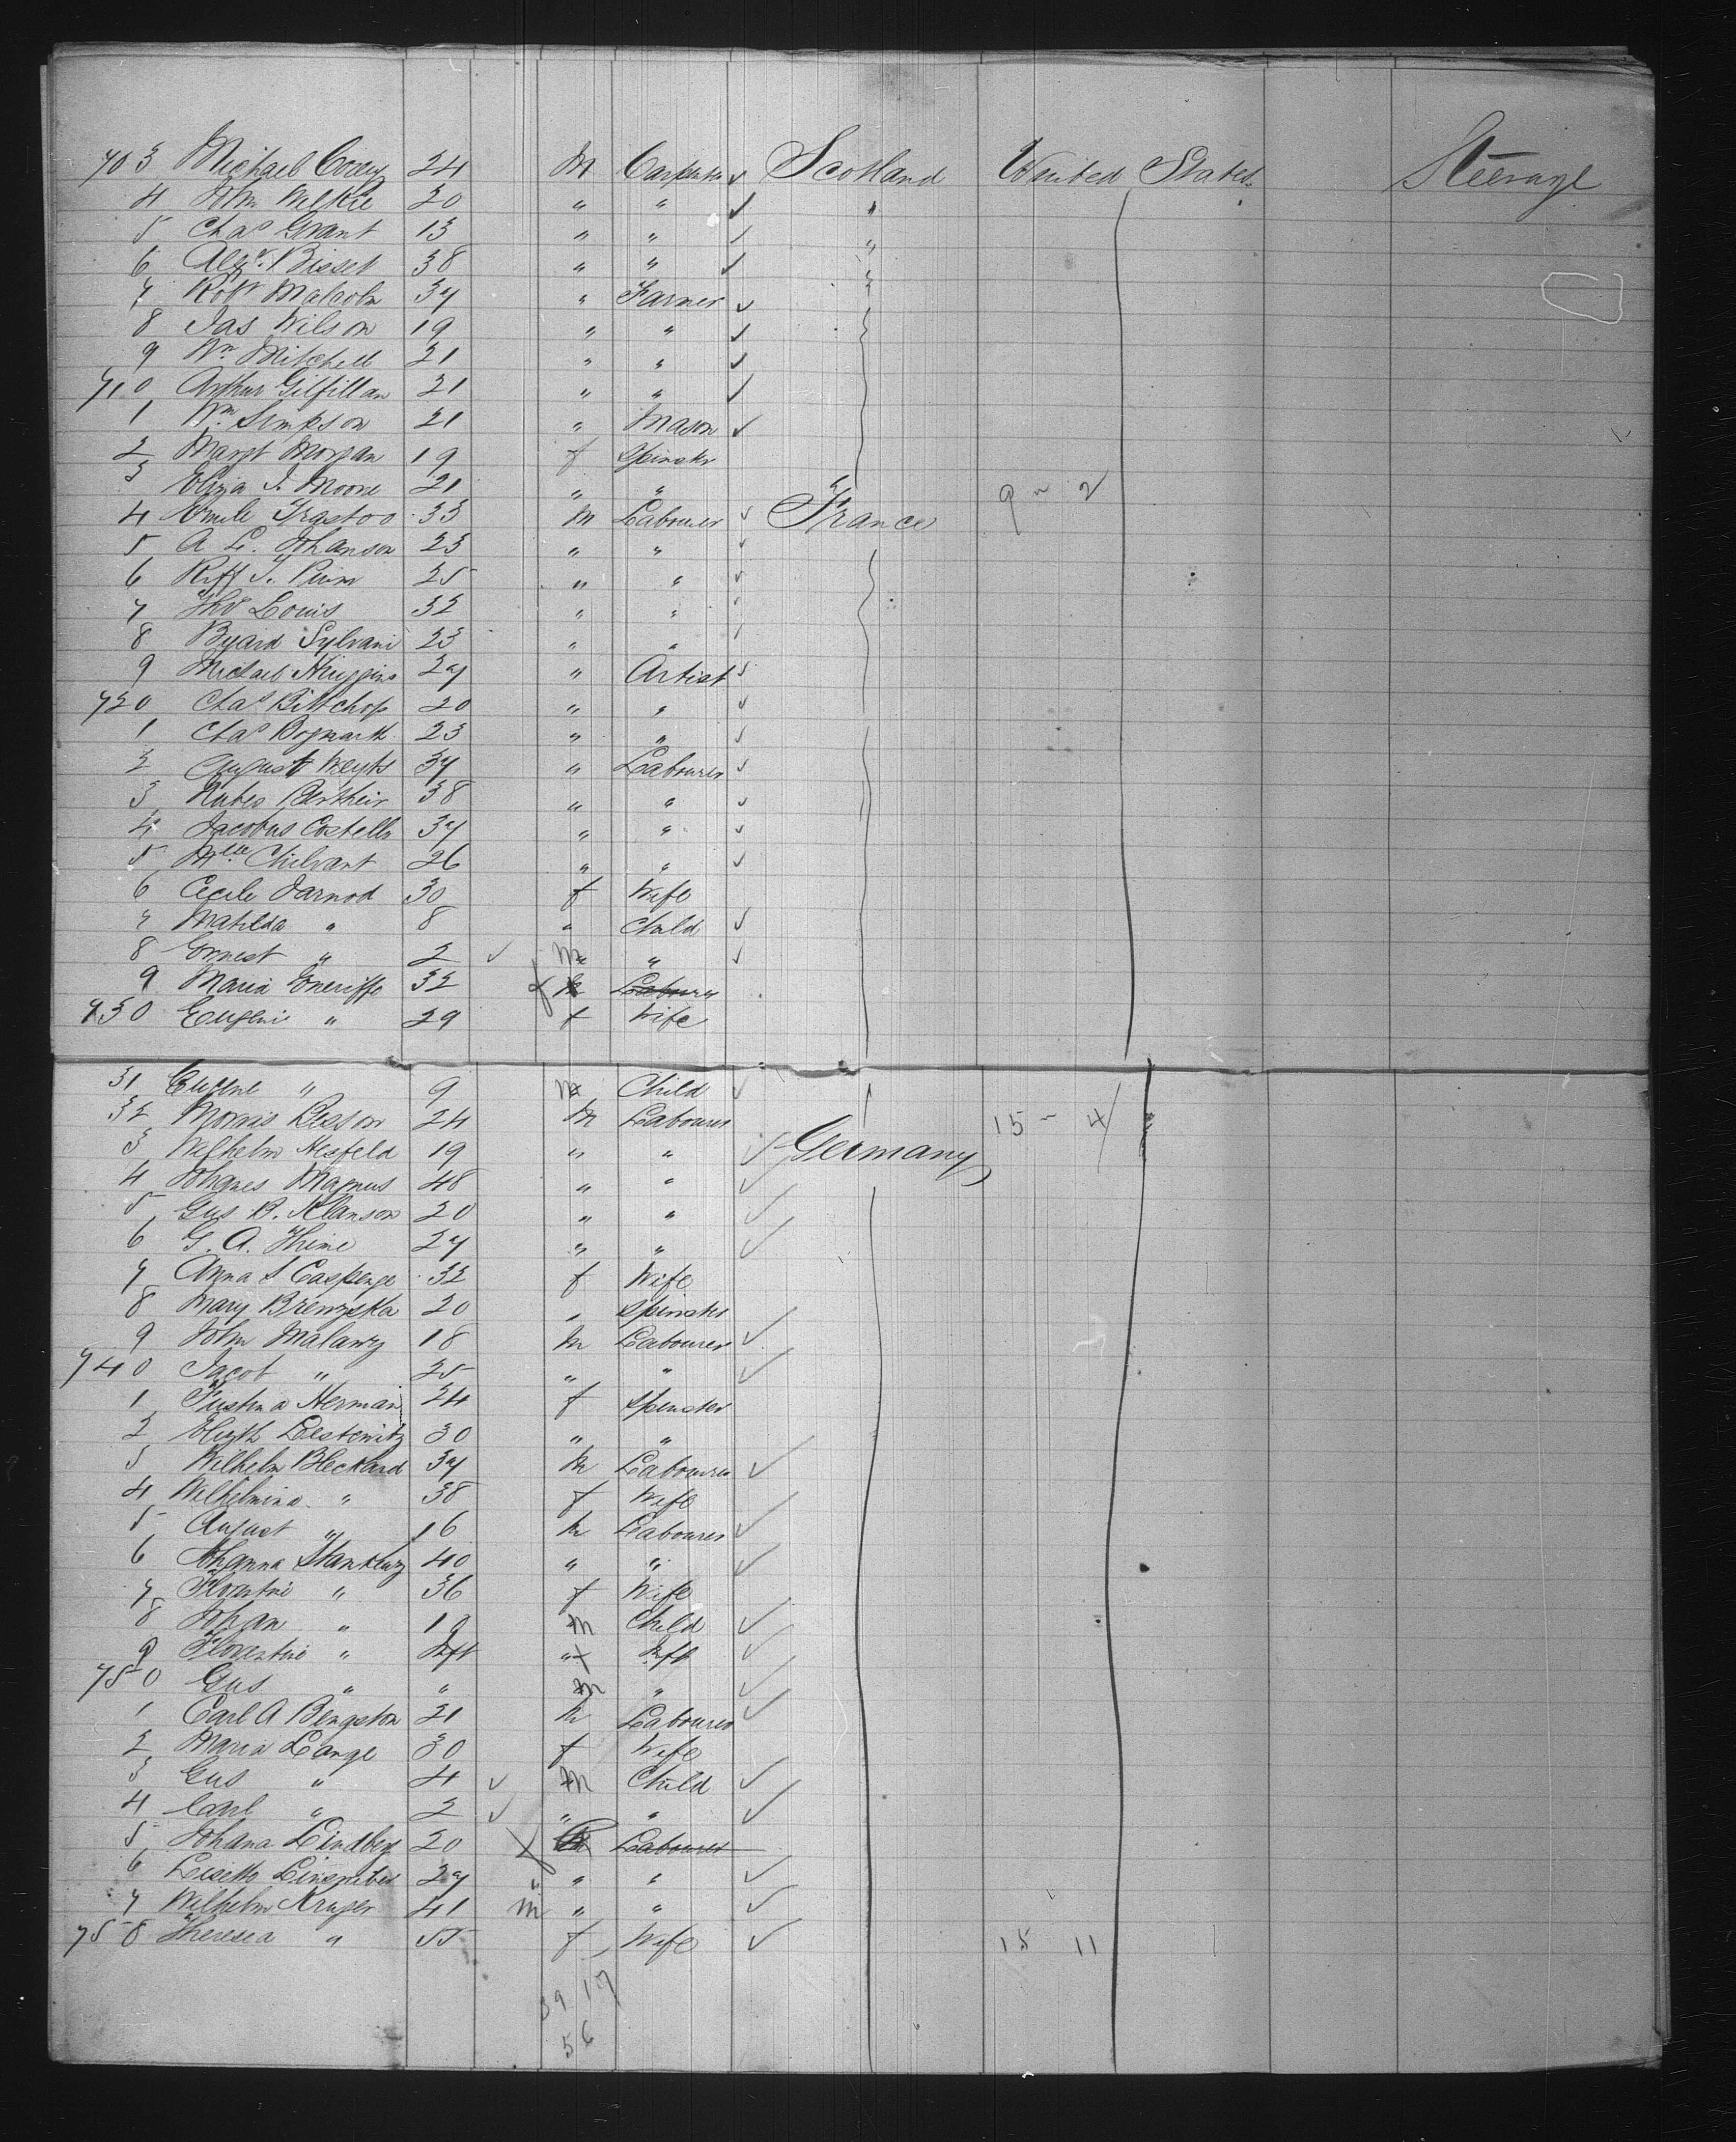 703 Michael Corey 24 M Carpenter Scotland United States Steerage
4 John Wilkie 20 " " "
5 Chas Grant 13 " " "
6 Alexr. Bisset 38 " "
7 Robt Malcolm 37 " Farmer
8 Jas Wilson 19 " "
9 Wm. Mitchell 21 " "
710 Arthur Gilfillan 21 " "
1 Wm. Simpson 21 " Mason
2 Margt Morgan 19 f Spinster
3 Eliza J. Moore 21 " " " 9 " 2
4 Emile 33 M Labourer France
5 A L. Johanson 23 " "
6 Riff J. 25 " "
7 Louis 32 " "
8 Byard Sylvani 23 " "
9 Michael Huggins 27 " Artist
720 Chas Bittchop 20 " "
1 Chas 23 " "
2 August Weyts 37 " Labourer
3 Berthier 38 " "
4 Jacobus Costello 37 " "
5 Mlle. Chilvant 26 " "
6 Cecile Jarnod 30 f Wife
7 Matilda " 8 " Child
8 Ernest " 2 m "
9 Maria Eneriffe 32 f Labourer
730 Eugenie " 29 f Wife
31 Eugene " 9 m Child
32 Morris Lesson 24 M Labourer 15 - 4
3 Wilhelm Hesfeld 19 " " Germany
4 Johanes Magnus 48 " "
5 Gus B. Klanson 20 " "
6 G. A. Thime 27 " "
7 Anna S Caspenge 32 f Wife
8 Mary Brenzska 20 " Spinster
9 John Malawy 18 M Labourer
740 Jacob " 25 " "
1 Justina Herman 24 f Spinster
2 Elizth Lestenitz 30 " "
3 Wilhelm Bleckard 37 M Labourer
4 Wilhelmina " 38 f Wife
5 August " 16 M Labourer
6 Johanna 40 " "
7 Florentine " 36 f Wife
8 Johan " 19 m Child
9 Florentine " Inft " f Inft
750 Gus " " m "
1 Carl A Bengston 21 M Labourer
2 Maria Lange 30 f Wife
3 Gus " 4 m Child
4 Carl " 2 " "
5 Johana Lindberg 20 f Labourer
6 Lisette 27 " " "
7 Wilhelm Kruger 41 m " "
758 Theresa " 55 f Wife 15 11
39 17
56